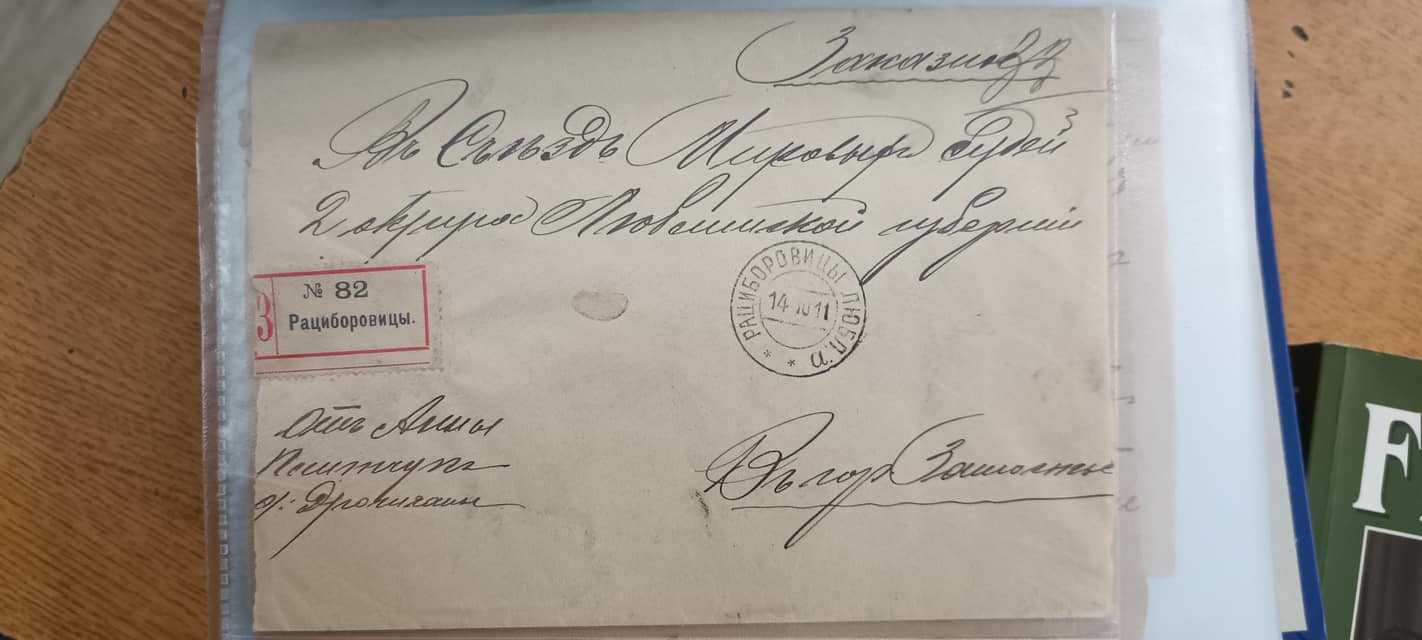 Заказное
Въ Съѣздъ Мировыхъ Судей
2 округа Люблинской губерніи
№ 82
Рациборовицы.
З
РАЦИБОРОВИЦЫ ЛЮБЛ. а.
14 10 11
Отъ Анны
д:
Въ гор Замостье
F